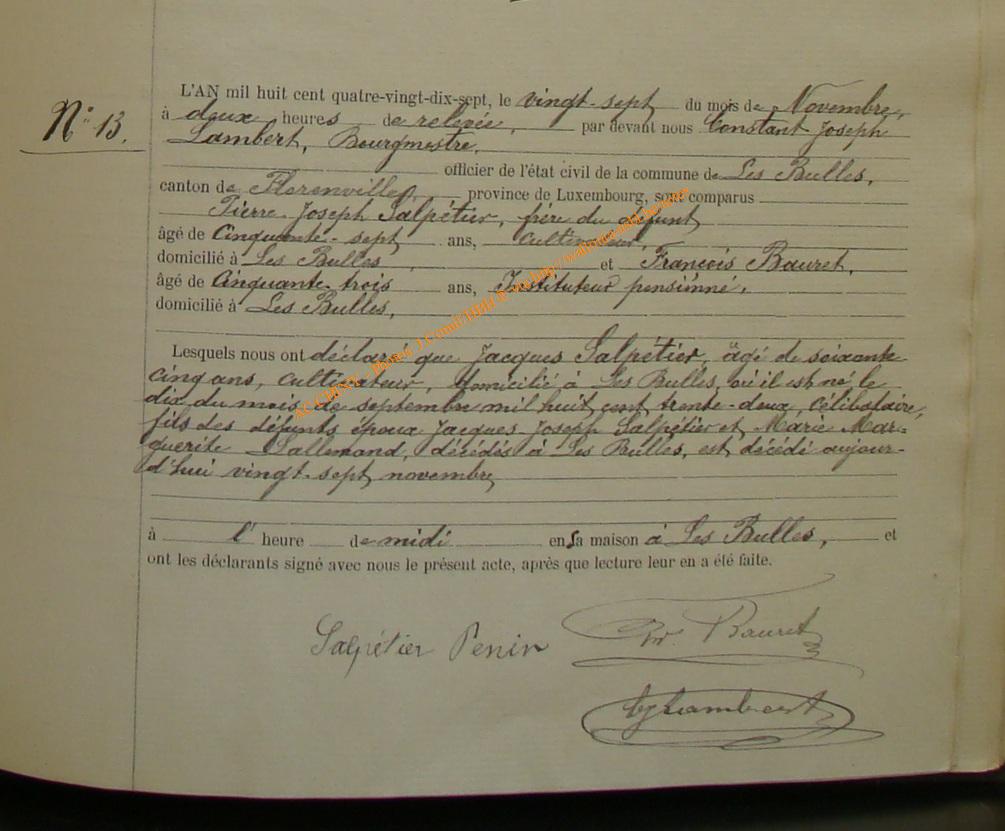 N° 13.
L'AN mil huit cent quatre-vingt-dix-sept, le vingt-sept du mois de Novembre,
à deux heures de relevée, par devant nous Constant Joseph
Lambert, Bourgmestre,
officier de l'état civil de la commune de Les Bulles,
canton de Florenville, province de Luxembourg, sont comparus
Pierre-Joseph Salpétier, frère du défunt
âgé de Cinquante-sept ans, cultivateur,
domicilié à Les Bulles, et François Bauret,
âgé de Cinquante-trois ans, Instituteur pensionné,
domicilié à Les Bulles,
Lesquels nous ont déclaré que Jacques Salpétier, âgé de soixante
cinq ans, cultivateur, domicilié à Les Bulles, où il est né le
dix du mois de septembre mil huit cent trente-deux, célibataire,
fils des défunts époux Jacques-Joseph Salpétier et Marie Mar-
guerite Lallemand, décédés à Les Bulles, est décédé aujour-
d'hui vingt-sept novembre
à l' heure de midi en sa maison à Les Bulles, et
ont les déclarants signé avec nous le présent acte, après que lecture leur en a été faite.
Salpétier Penin
Fr. Bauret
CJLambert